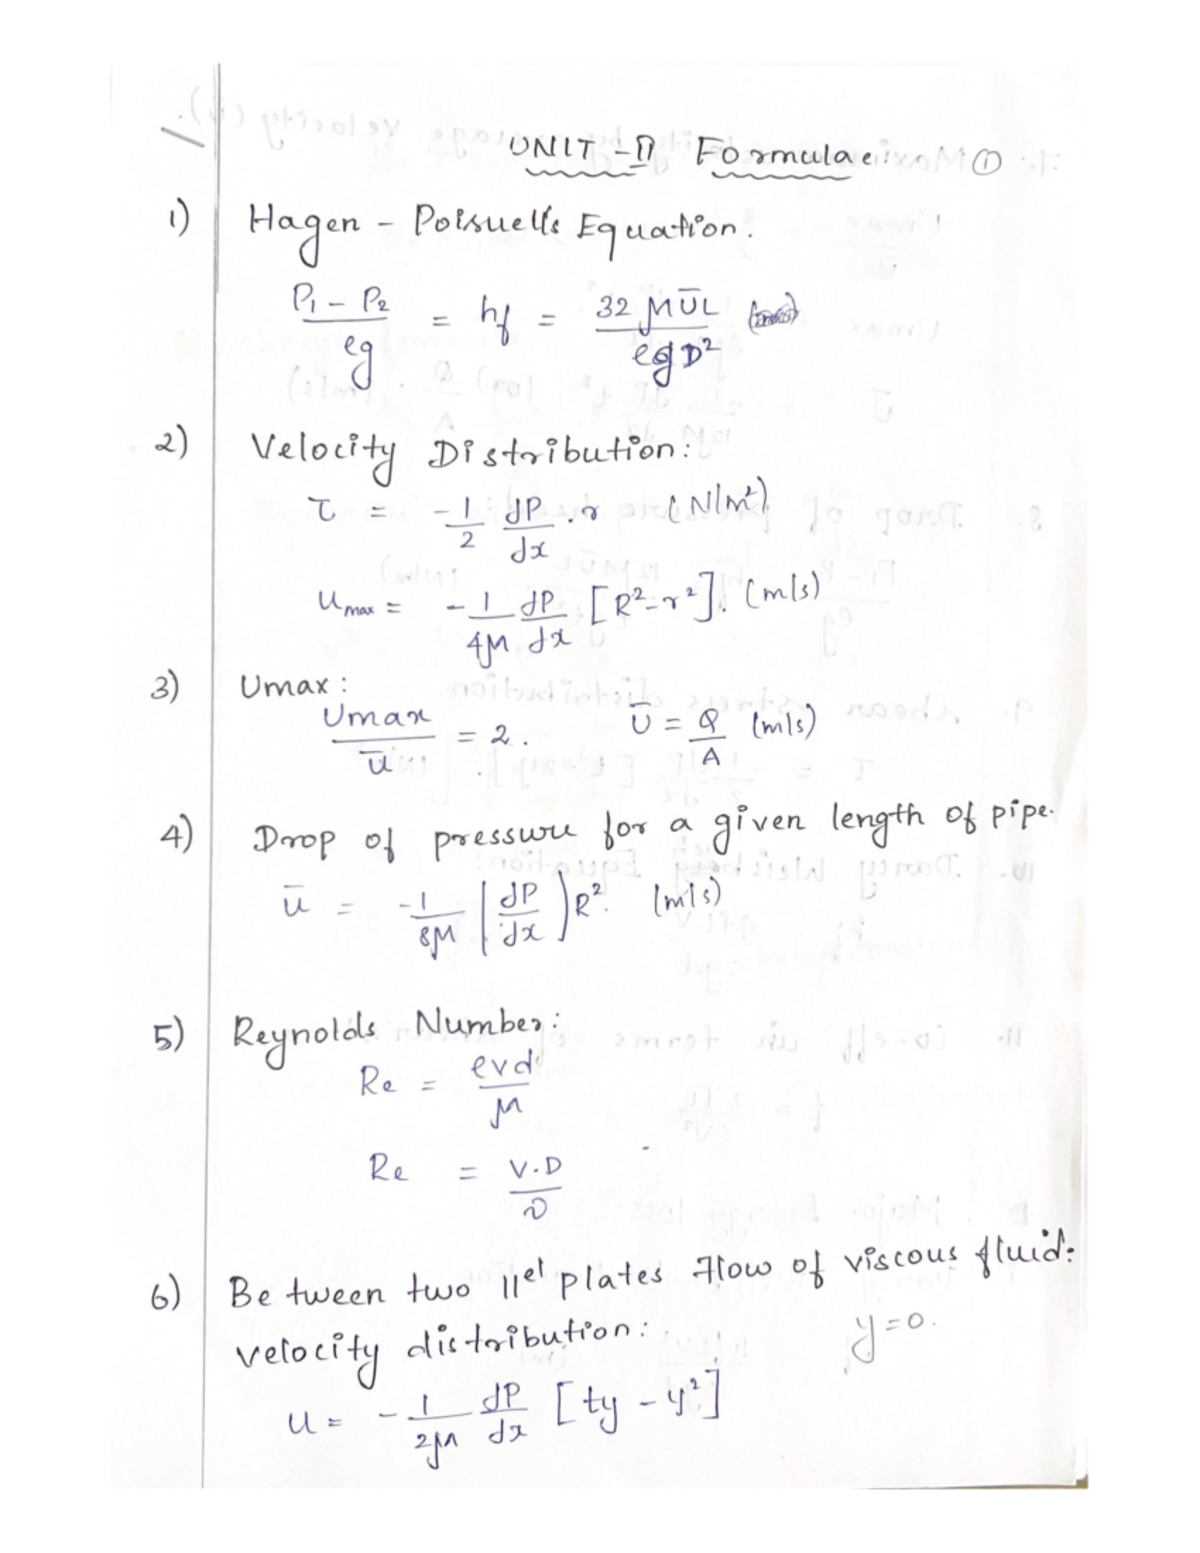 UNIT - II Formulae: ①
1) Hagen - Poisuell's Equation.
P₁ - P₂ / ρg = hf = 32 μŪL / ρg D²
2) Velocity Distribution:
τ = -1/2 dP/dx . r (N/m²)
Umax = -1/4μ dP/dx [R² - r²]. (m/s)
3) Umax:
Umax / ū = 2. Ū = Q/A (m/s)
4) Drop of pressure for a given length of pipe.
ū = -1/8μ (dP/dx) R². (m/s)
5) Reynolds Number:
Re = ρvd / μ
Re = V.D / ν
6) Between two ||el plates Flow of viscous fluid:
velocity distribution: y=0.
U = -1/2μ dP/dx [ty - y²]